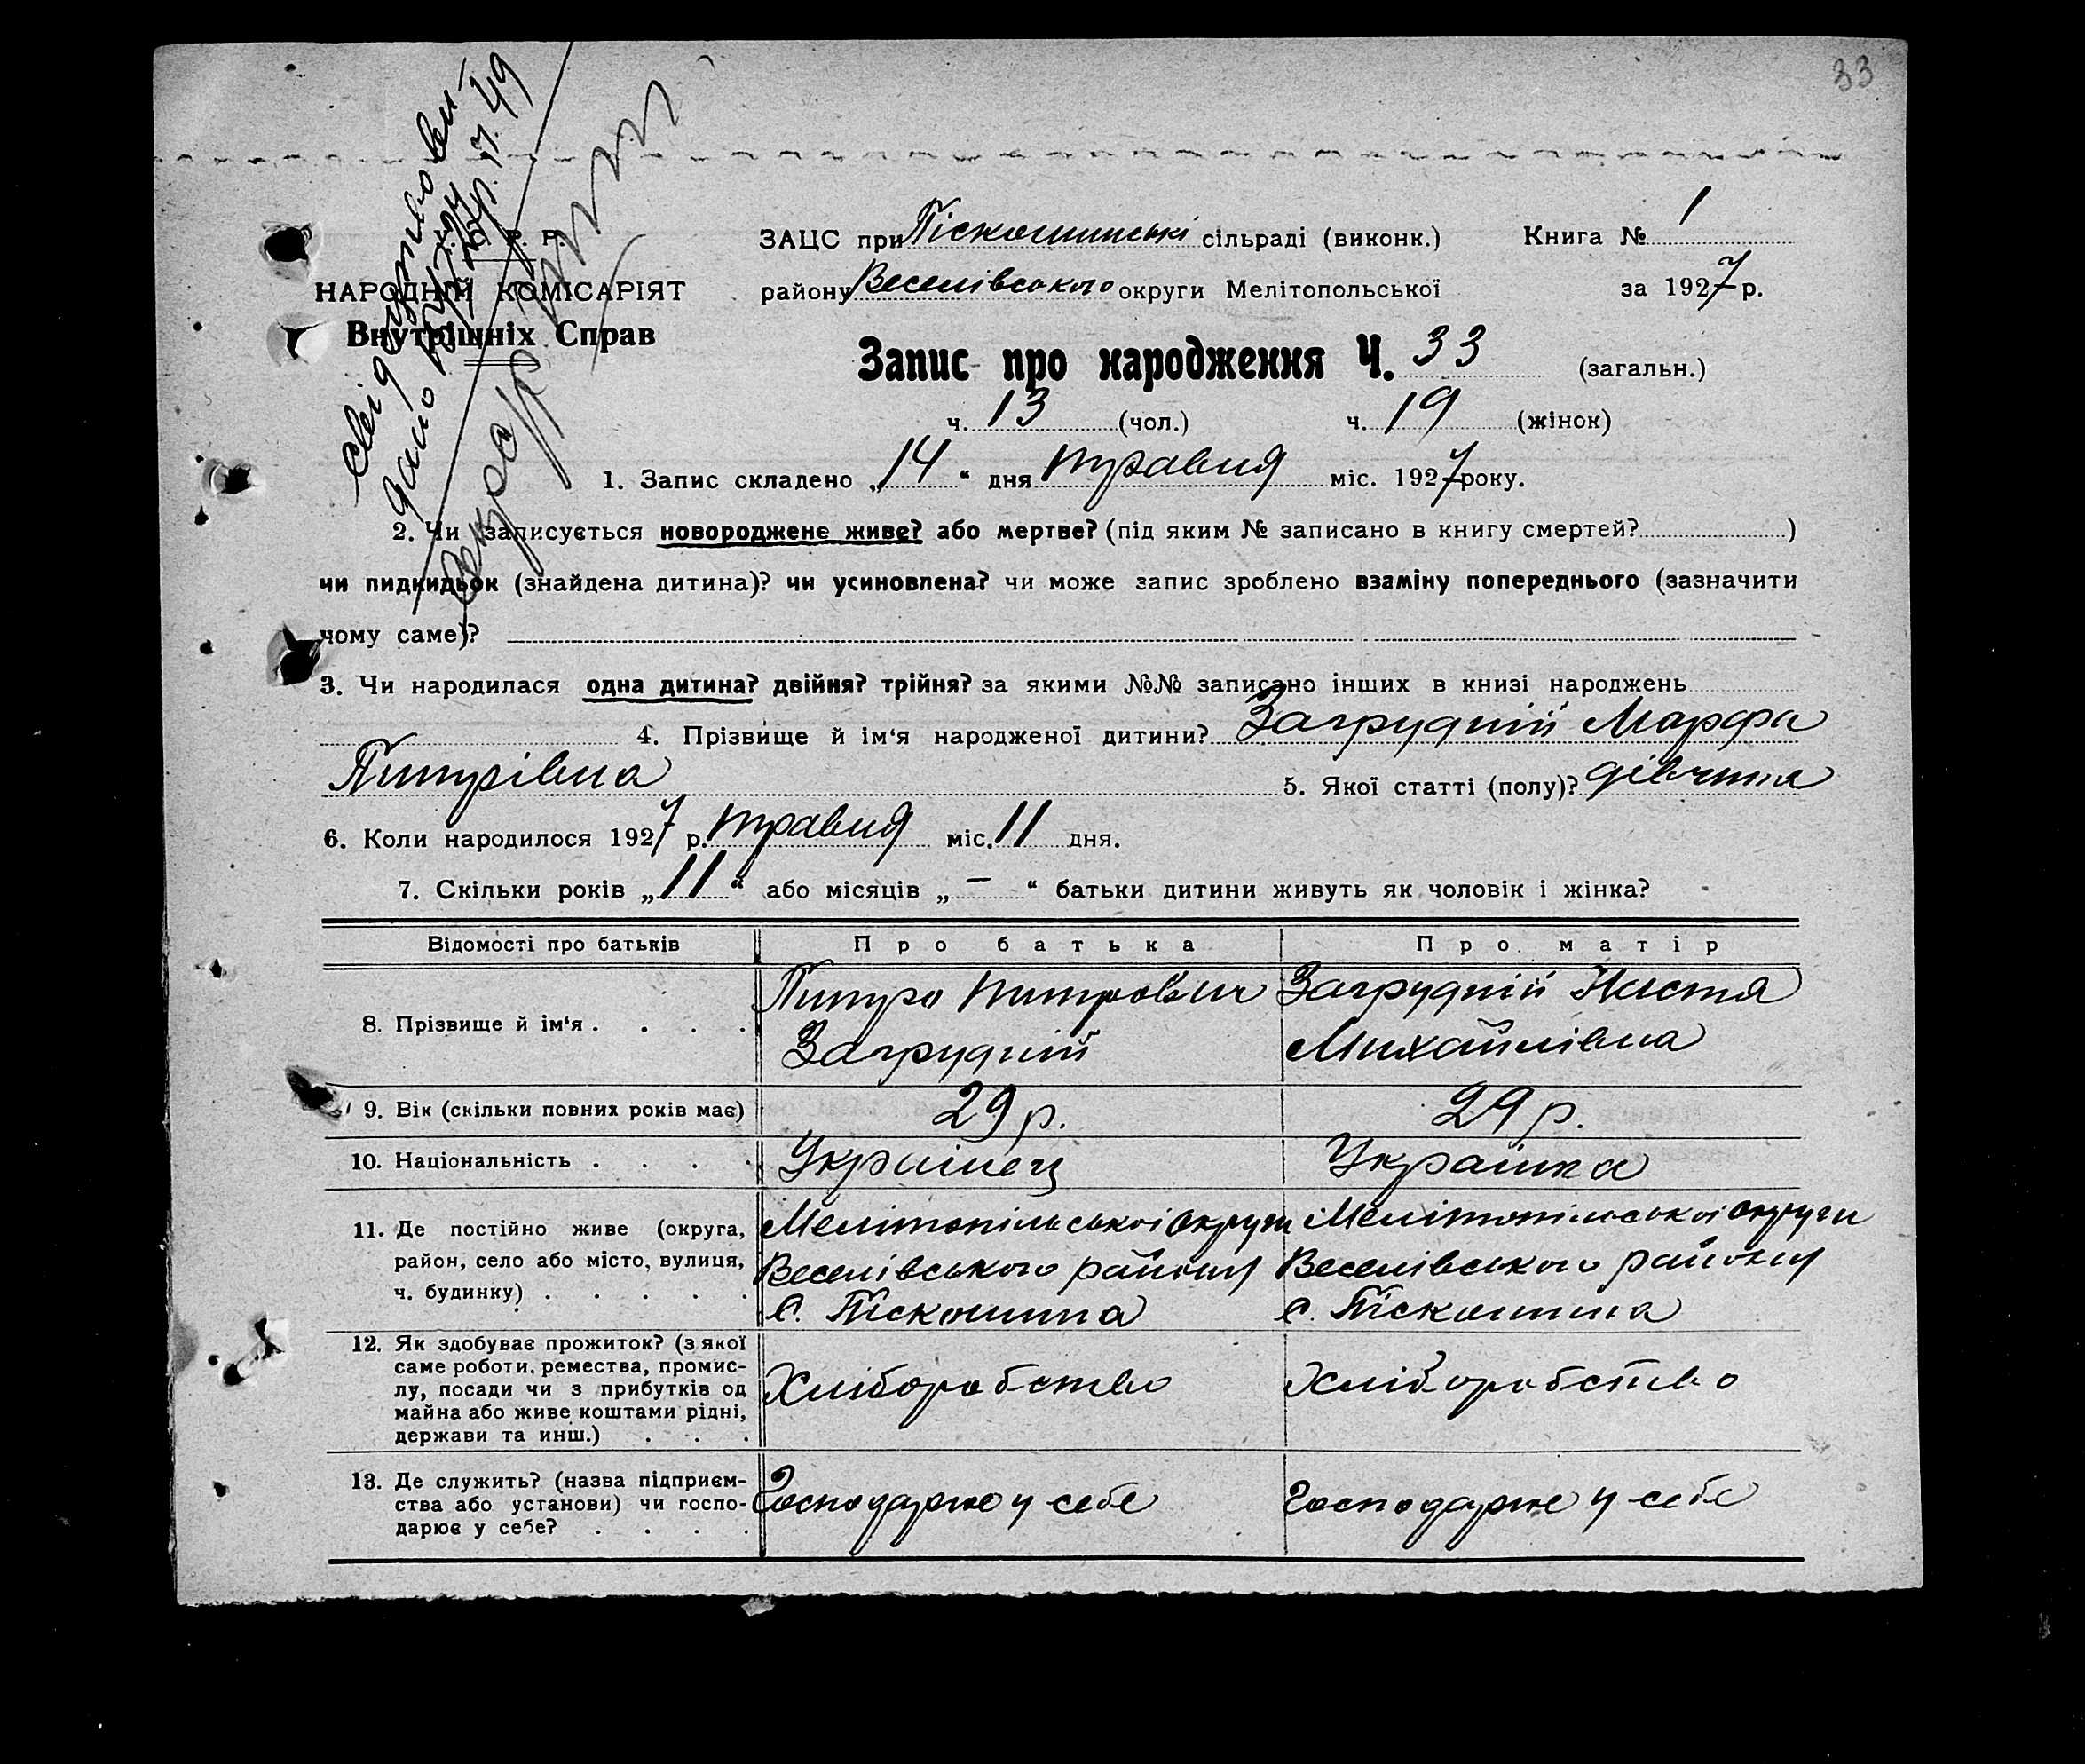 33
У. С. Р. Р.
НАРОДНИЙ КОМІСАРІЯТ
Внутрішніх Справ
ЗАЦС при Піскошинські сільраді (виконк.) Книга № 1
району Веселівського округи Мелітопольської за 1927 р.
Запис про народження Ч. 33 (загальн.)
ч. 13 (чол.) ч. 19 (жінок)
1. Запис складено „14“ дня травня міс. 1927 року.
2. Чи записується новороджене живе? або мертве? (під яким № записано в книгу смертей? )
чи пидкидьок (знайдена дитина)? чи усиновлена? чи може запис зроблено взаміну попереднього (зазначити
чому саме)?
3. Чи народилася одна дитина? двійня? трійня? за якими №№ записано інших в книзі народжень
4. Прізвище й ім‘я народженої дитини? Загрудній Марфа
Питрівна 5. Якої статті (полу)? дівчина
6. Коли народилося 1927 р. травня міс. 11 дня.
7. Скільки років „11“ або місяців „—“ батьки дитини живуть як чоловік і жінка?
Відомості про батьків Про батька Про матір
8. Прізвище й ім‘я . . . . Питро Питрович Загрудній Настя
Загрудній Михайлівна
9. Вік (скільки повних років має) 29 р. 29 р.
10. Національність . . . . Українец Украінка
11. Де постійно живе (округа, Мелітопільської округи Мелітопільської округи
район, село або місто, вулиця, Веселівського району Веселівського району
ч. будинку) . . . . . с. Піскошина с. Піскошина
12. Як здобуває прожиток? (з якої
саме роботи, ремества, промис-
лу, посади чи з прибутків од Хліборобство Хліборобство
майна або живе коштами рідні,
держави та инш.) . . .
13. Де служить? (назва підприєм-
ства або установи) чи госпо- Господарює у себе Господарює у себе
дарює у себе? . . . .